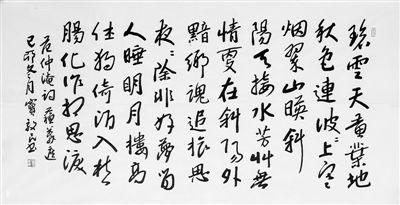 碧雲天黄葉地
秋色連波〻上寒
烟翠山暎斜
陽天接水芳艸無
情更在斜陽外
黯鄉魂追旅思
夜〻除非好夢留
人睡明月樓高
休獨倚酒入愁
腸化作相思淚
范仲淹詞蘇幕遮
己卯冬月